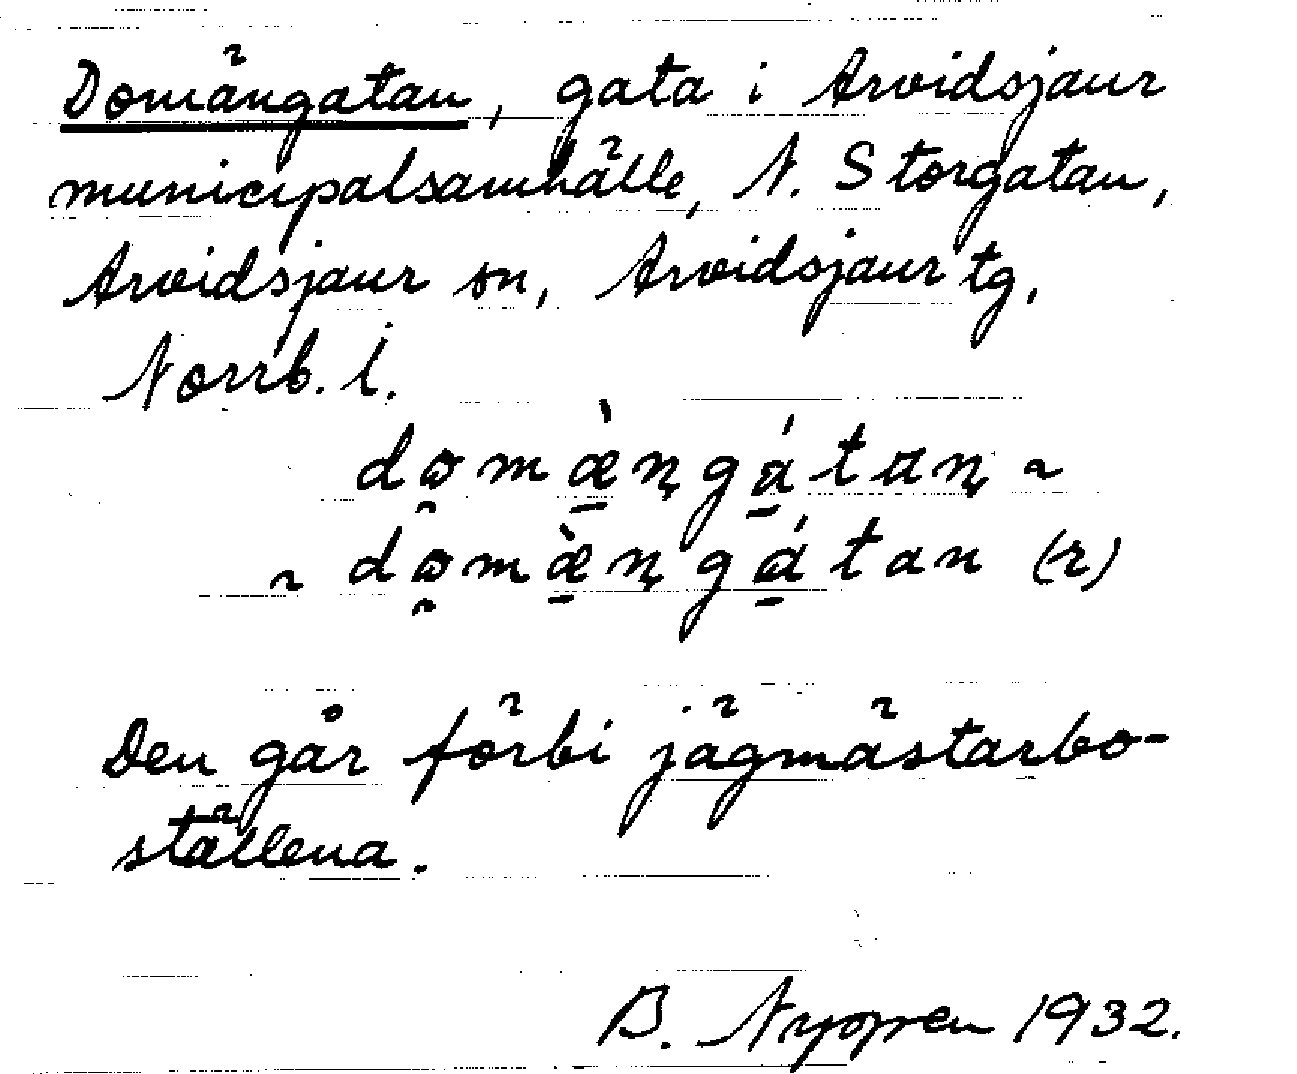 Domängatan, gata i Arvidsjaur
municipalsamhälle, N. Storgatan,
Arvidsjaur sn, Arvidsjaur tg,
Norrb. l.
Den går förbi jägmästarbo-
ställena.
B. 1932.